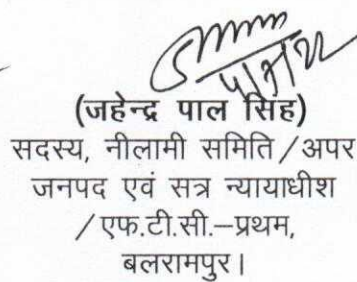 (जहेन्द्र पाल सिंह)
सदस्य, नीलामी समिति/अपर
जनपद एवं सत्र न्यायाधीश
/एफ.टी.सी.–प्रथम,
बलरामपुर।